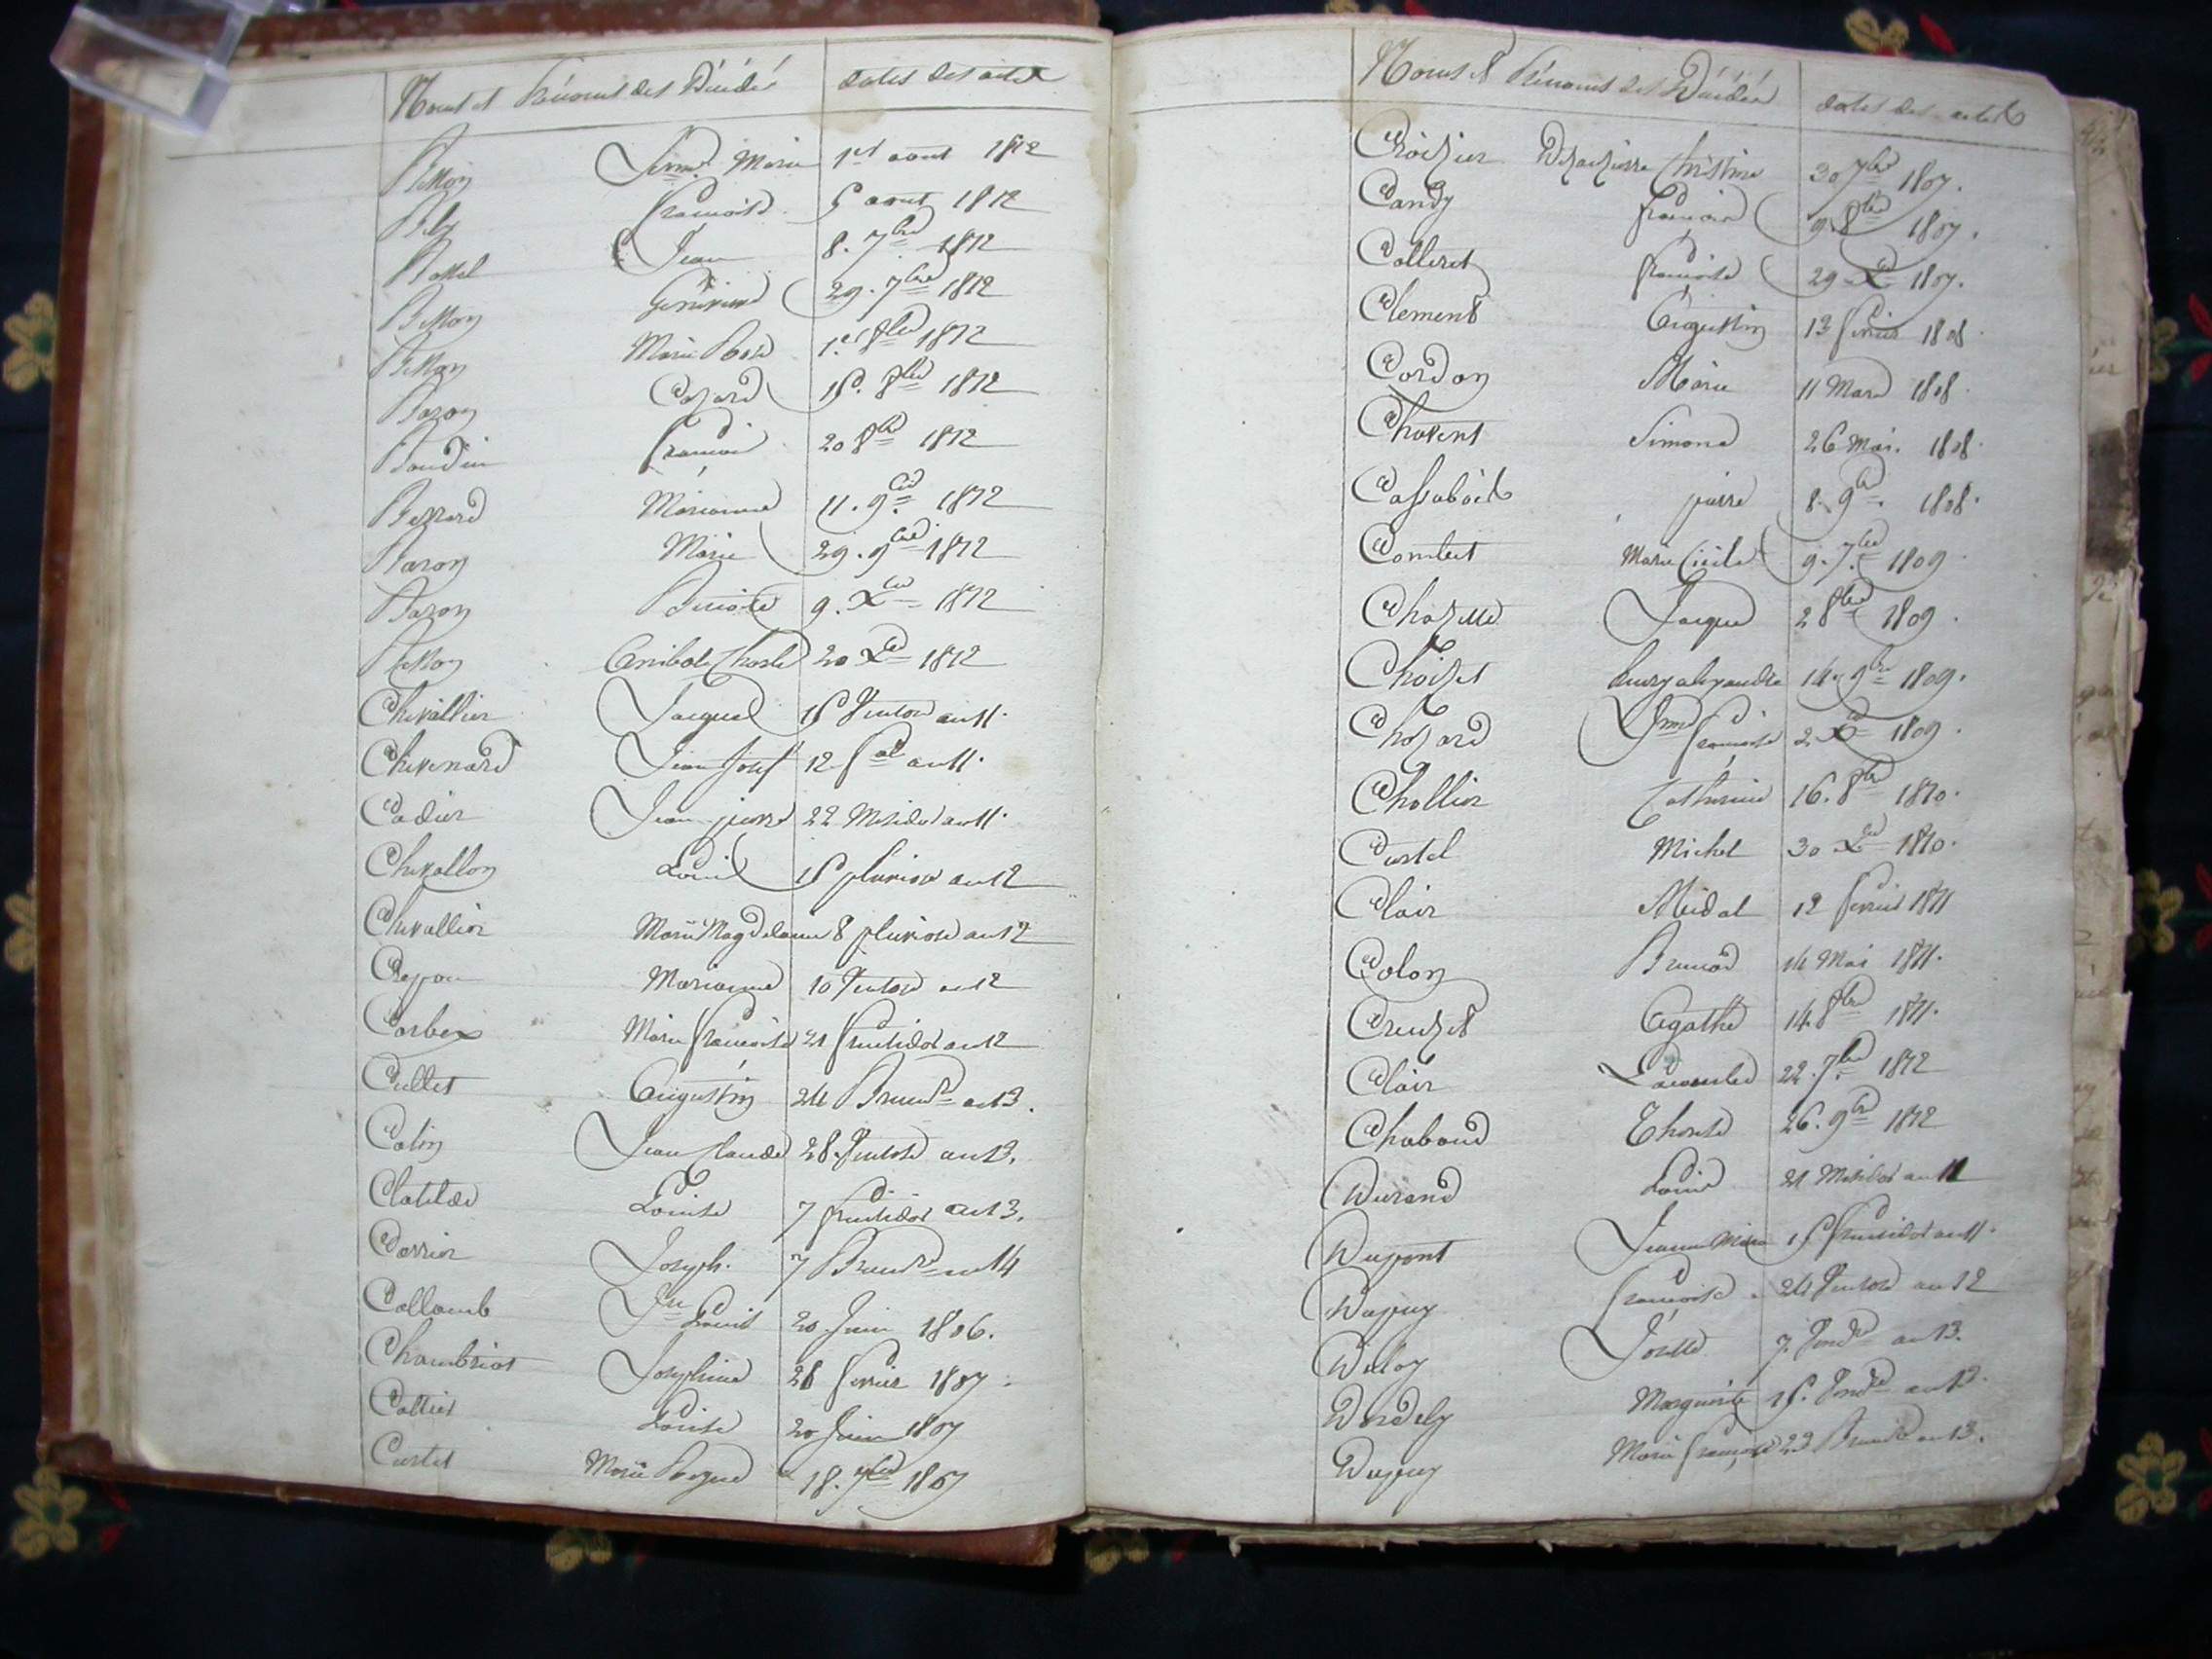 Noms et Prénoms des Décédés dates des actes
Besson Jnne Marie 1er aout 1812
Bely francoise 5 aout 1812
Jean 8. 7bre 1812
Besson Genevieve 29. 7bre 1812
Besson Marie Rose 1er 8bre 1812
Bazon Cezard 15. 8bre 1812
Baudin francois 20 8bre 1812
Bessard Marianne 11. 9bre 1812
Baron Marie 29. 9bre 1812
Bazon Benoite 9. Xbre 1812
Besson Anibale Charle 20 Xbre 1812
Chevallier Jacques 15 Ventose an 11.
Chevenard Jean Josef 12 fal an 11.
Cadier Jean pierre 22 Messidor an 11.
Chevallon Louis 15 pluviose an 12
Chevallier Marie Magdelaine 8 pluviose an 12
Crepon Marianne 10 Ventose an 12
Corbex Marie francoise 21 fructidor an 12
Cullet Augustin 24 Brumre an 13.
Colin Jean Claude 28 Ventose an 13.
Clotilde Louise 7 fructidor an 13.
Carrier Joseph. 7 Brumre an 14
Collomb Jn Louis 20 Juin 1806.
Chambriot Josephine 28 fevrier 1807.
Collet Louise 20 Juin 1807
Curtet Marie 18. 7bre 1807
Noms et Prénoms des Décédés dates des actes
Croizier Christine 30 7bre 1807.
Candy francois 9. 8bre 1807.
Colleret francoise 29 Xbre 1807.
Clement Augustin 13 fevrier 1808.
Cordon Marie 11 Mars 1808.
Chovent Simone 26 Mai. 1808.
Cassabois pierre 8. 9bre. 1808.
Combet Marie Cicile 9. 7bre 1809.
Chazelle Jacque 2 8bre 1809.
Choizet alexandre 14. 9bre 1809.
Chozard Jnne francoise 2 Xbre 1809.
Chollier Catherine 16. 8bre 1810.
Curtel Michel 30 Xbre 1810.
Clair Medal 12 fevrier 1811
Colon Benoid 14 Mai 1811.
Creuzet Agathe 14. 8bre 1811.
Clair 22. 7bre 1812
Chaboud Therese 26. 9bre 1812
Durand Louis 21 Messidor an 11
Dupont Jeanne Marie 15 fructidor an 11.
Dupuy francoise 24 Ventose an 12
Duloy Josette 7. Vendre an 13.
Dardely Marguerite 15. Vendre an 13.
Dupuy Marie francoise 23 Brumre an 13.